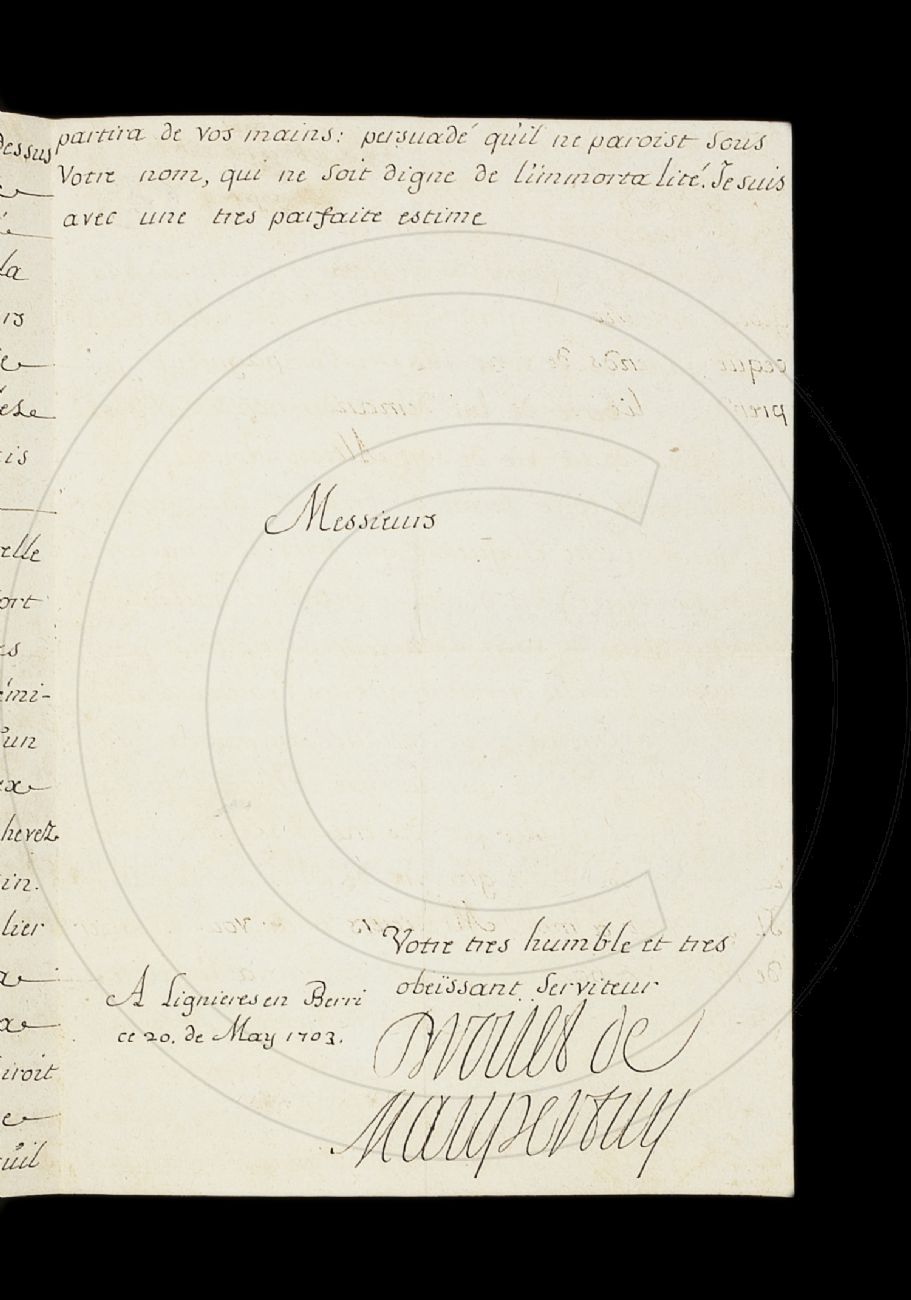 partira de vos mains: persuadé qu'il ne paroist sous
Votre nom, qui ne soit digne de l'immortalité. Je suis
avec une tres parfaite estime
Messieurs
Votre tres humble et tres
obeïssant serviteur
A Lignieres en Berri
ce 20. de May 1703.
Droüet de
Maupertuy
dessus
la
elle
ort
émi-
un
hevez
in.
lier
iroit